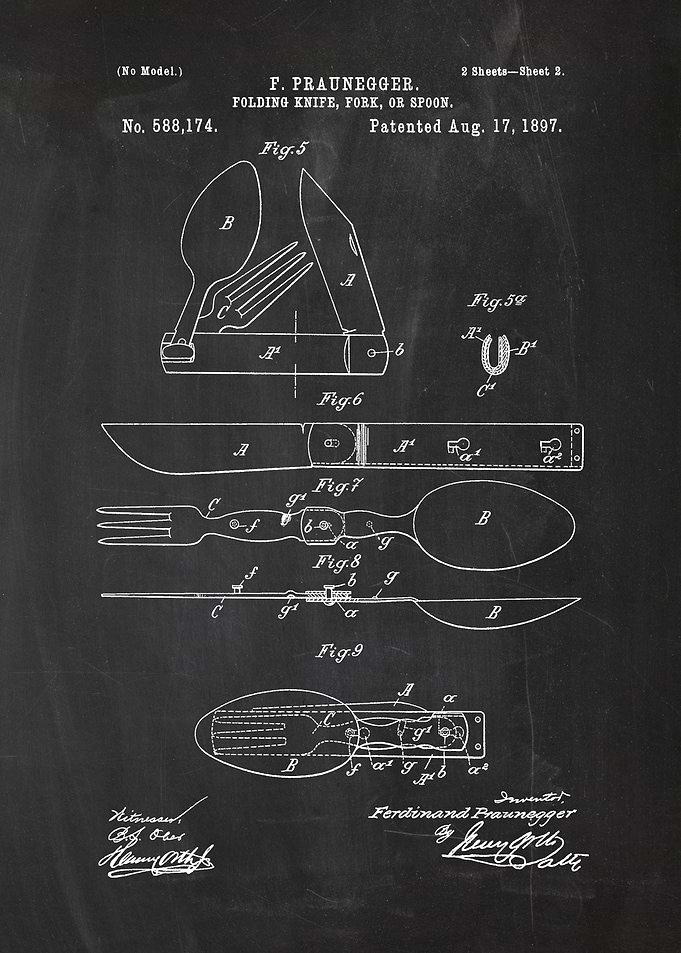 (No Model.)
2 Sheets—Sheet 2.
F. PRAUNEGGER.
FOLDING KNIFE, FORK, OR SPOON.
No. 588,174.
Patented Aug. 17, 1897.
Fig. 5
B
A
C
A¹
b
Fig. 5ª
A¹
B¹
C¹
Fig. 6
A
A¹
a¹
a²
Fig. 7
C
f
g¹
b
a
g
B
Fig. 8
f
C
g¹
b
a
g
B
Fig. 9
A
a
C
g¹
B
f
a¹
g
A¹
b
a²
Witnesses,
Inventor,
Ferdinand Praunegger
By